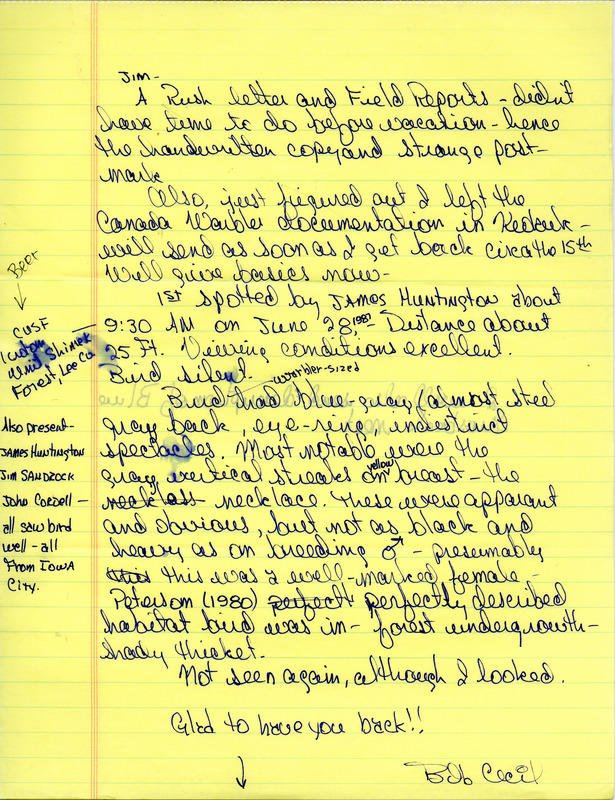 Jim-
A Rush letter and Field Reports - didn't
have time to do before vacation - hence
the handwritten copy and strange post-
mark
Also, just figured out I left the
Canada Warbler documentation in Keokuk -
will send as soon as I get back circa the 15th
Will give basics now -
1st spotted by James Huntington about
9:30 AM on June 28, 1987 Distance about
25 Ft. Viewing conditions excellent.
Bird silent.
warbler-sized
Bird had blue-gray (almost steel
gray back, eye-ring, indistinct
spectacles. Most notable were the
gray vertical streaks on yellow breast - the
neckless necklace. These were apparent
and obvious, but not as black and
heavy as on breeding ♂ - presumably
this was a well-marked female -
Peterson (1980) perfect perfectly described
habitat bird was in - forest undergrowth -
shady thicket.
Not seen again, although I looked.
Glad to have you back!!
Bob Cecil
Beer
CUSF
Unit Shimek
Forest, Lee Co
Also present -
James Huntington
Jim Sandrock
John Cordell -
all saw bird
well - all
from Iowa
City.